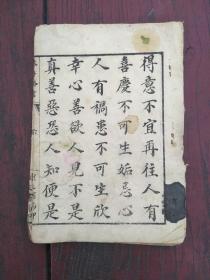 得意不宜再往人有
喜慶不可生妬忌心
人有禍患不可生欣
幸心善欲人見不是
真善惡恐人知便是